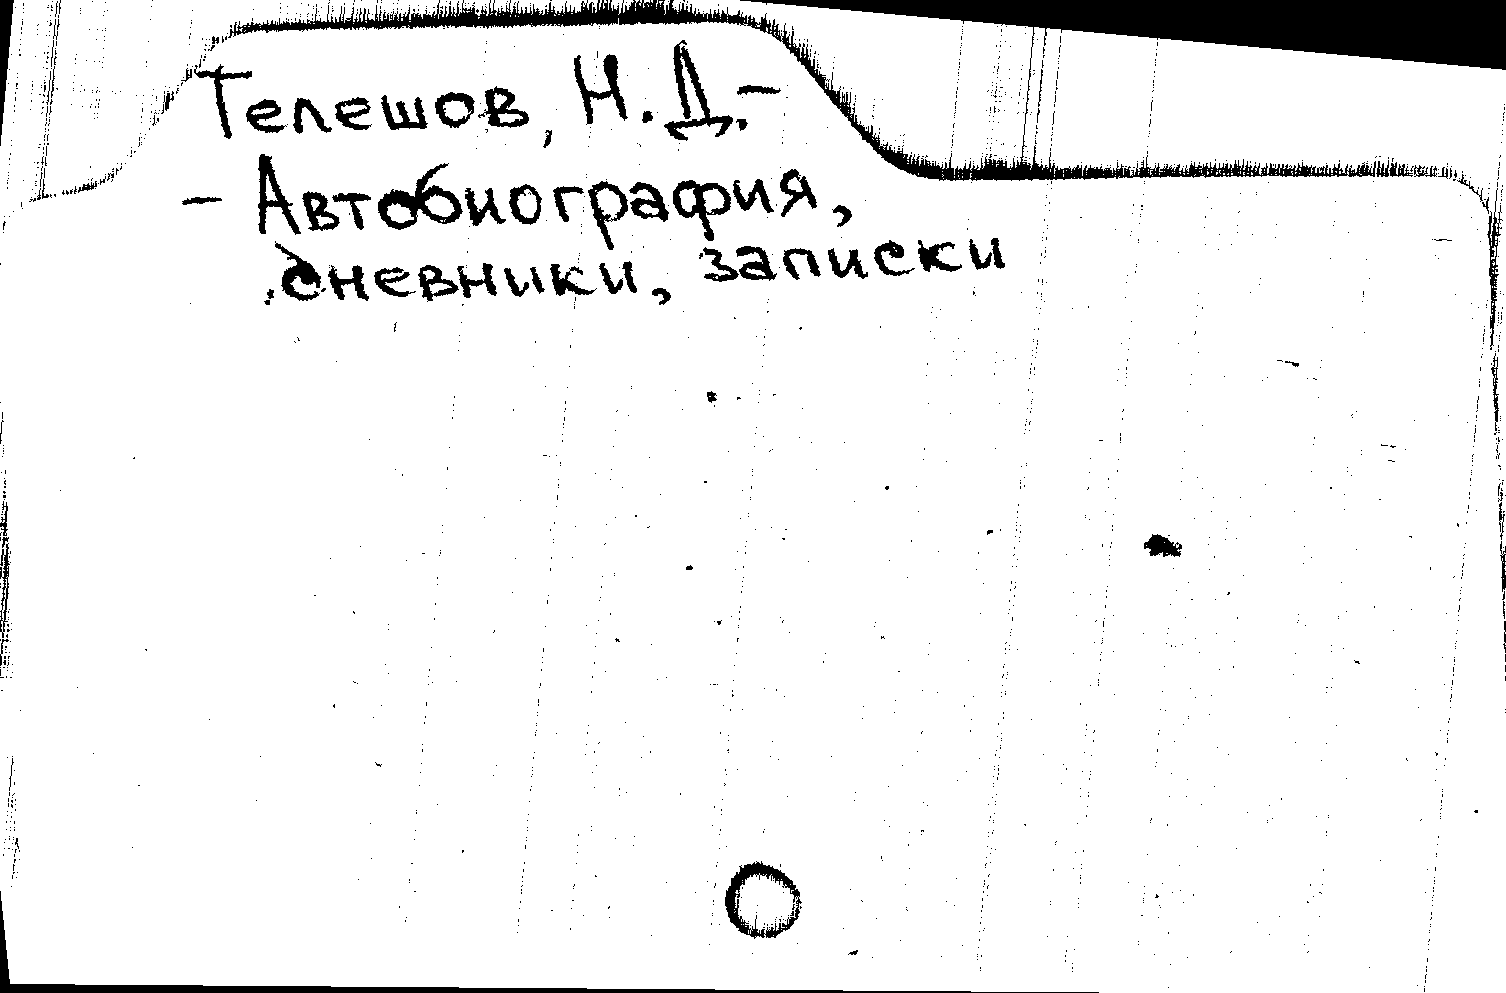 Телешов, Н. Д.-
- Автобиография,
дневники, записки